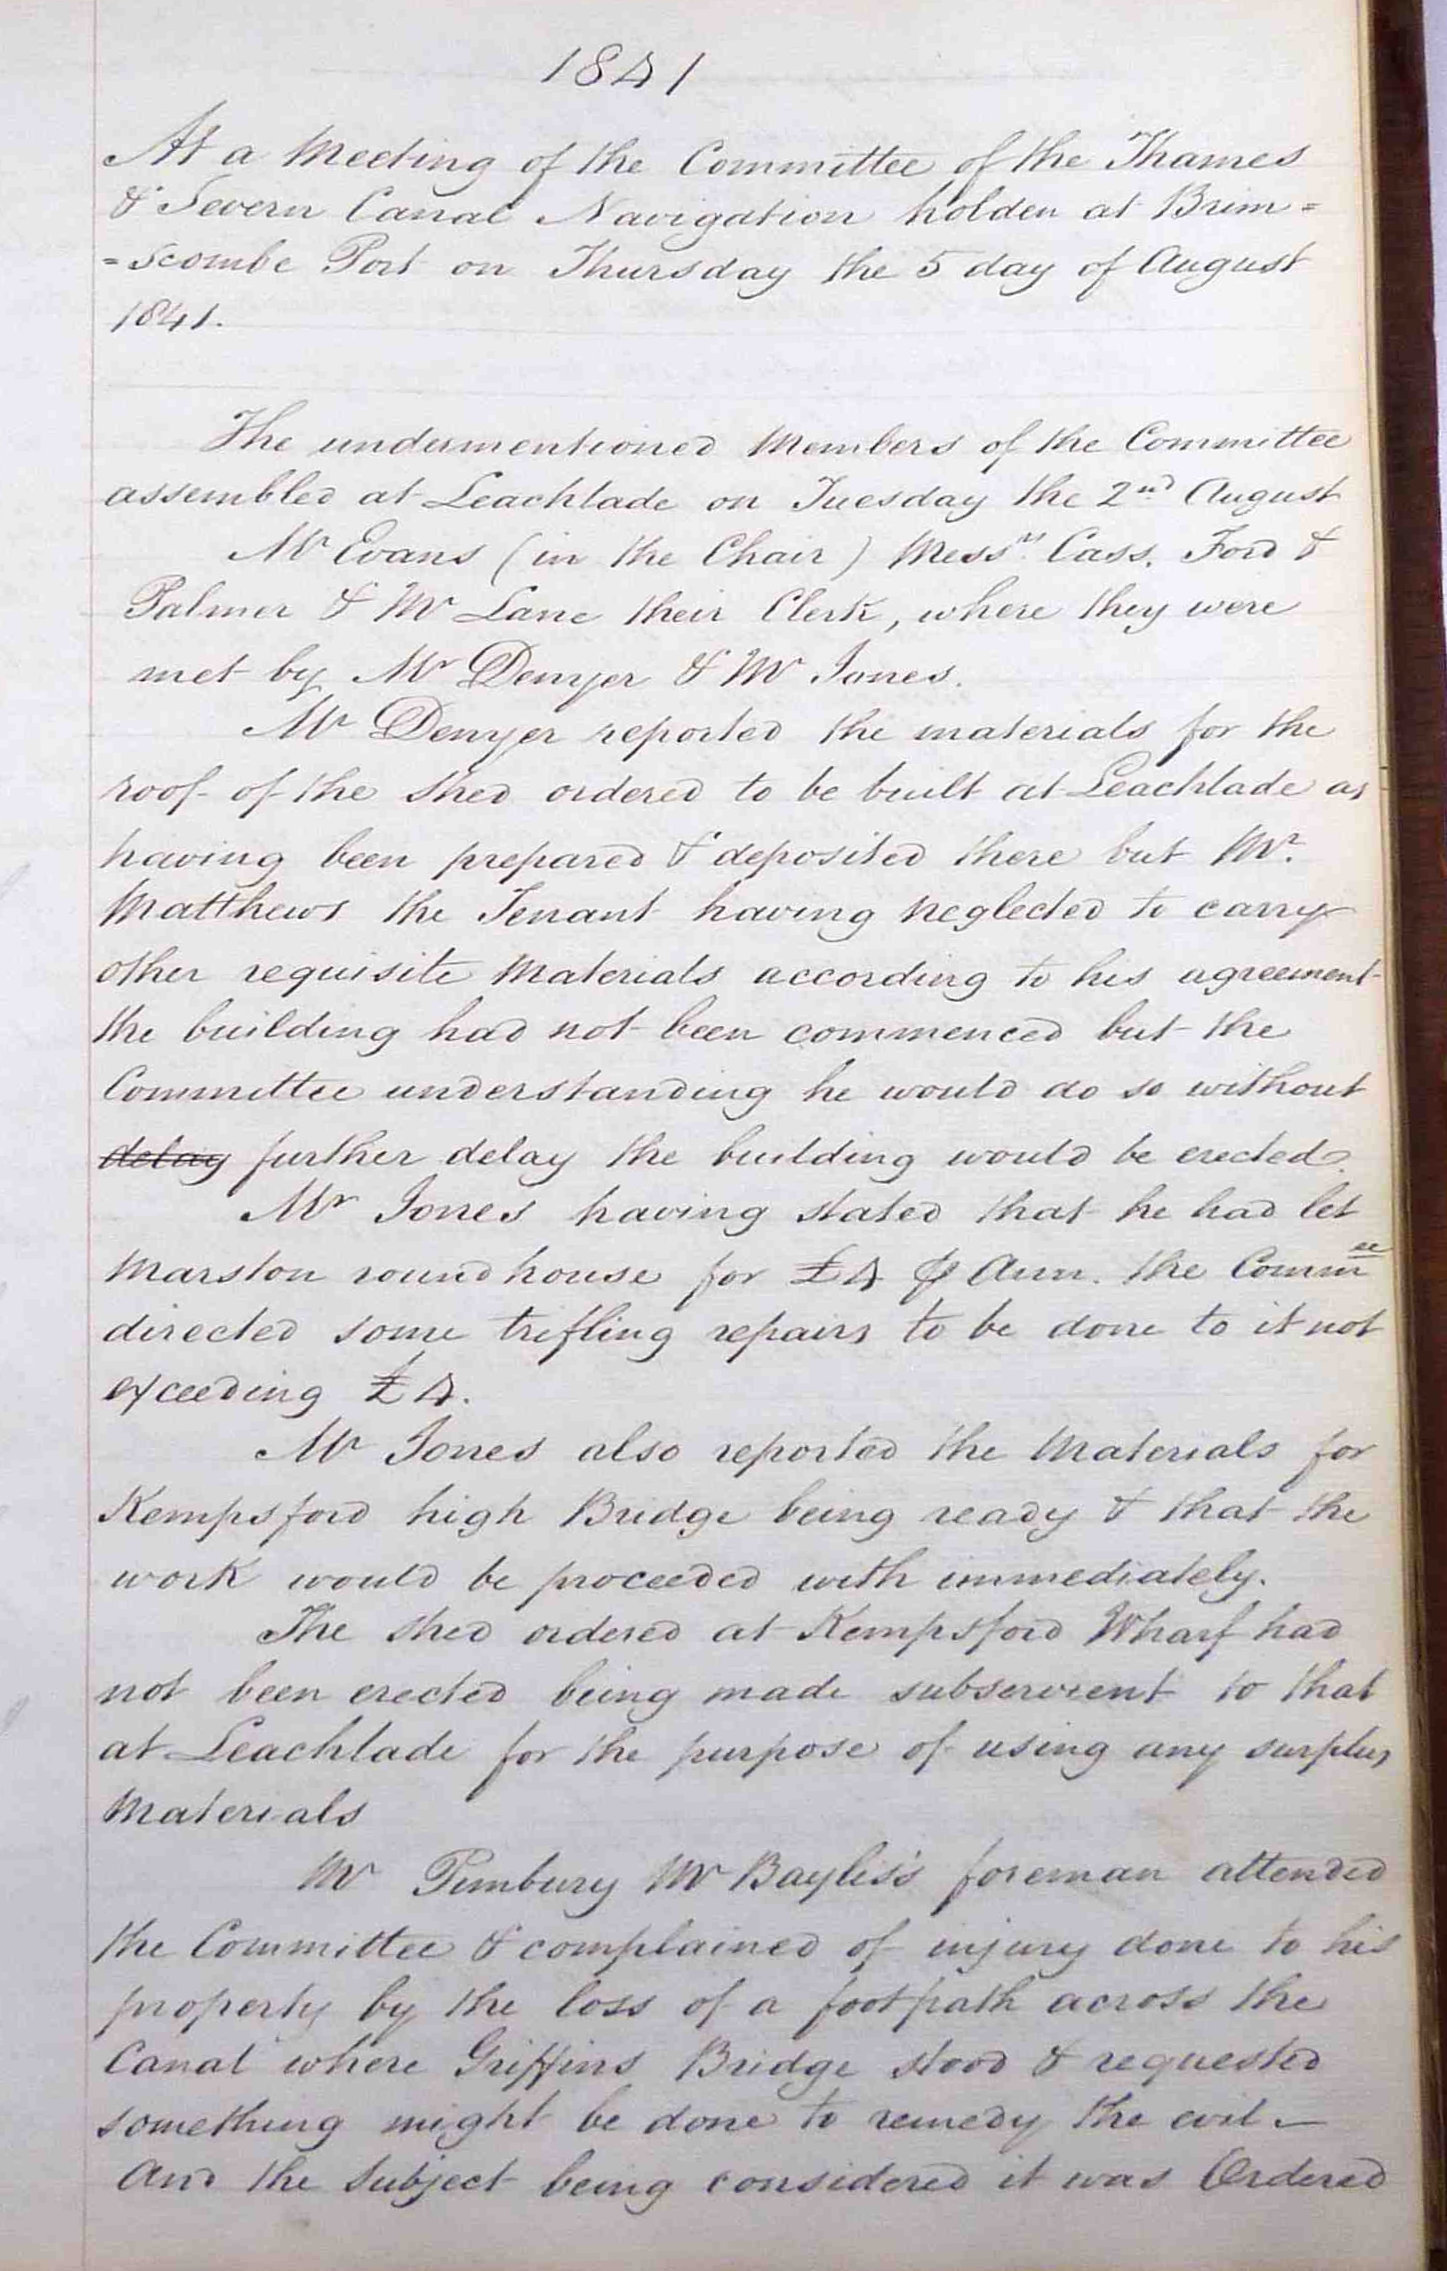 1841
At a Meeting of the Committee of the Thames
& Severn Canal Navigation holden at Brim=
=scombe Port on Thursday the 5 day of August
1841.
The undermentioned Members of the Committee
assembled at Leachlade on Tuesday the 2nd August
Mr Evans (in the Chair) Messrs Cass, Ford &
Palmer & Mr Lane their Clerk, where they were
met by Mr Denyer & Mr Jones.
Mr Denyer reported the materials for the
roof of the shed ordered to be built at Leachlade as
having been prepared & deposited there but Mr.
Matthews the Tenant having neglected to carry
other requisite Materials according to his agreement
the building had not been commenced but the
Committee understanding he would do so without
delay further delay the building would be erected.
Mr Jones having stated that he had let
Marston round house for £4 ⅌ Ann. the Commee
directed some trifling repairs to be done to it not
exceeding £4.
Mr Jones also reported the Materials for
Kempsford high Bridge being ready & that the
work would be proceeded with immediately.
The shed ordered at Kempsford Wharf had
not been erected being made subservient to that
at Leachlade for the purpose of using any surplus
Materials
Mr Pimbury Mr Bayliss's foreman attended
the Committee & complained of injury done to his
property by the loss of a footpath across the
Canal where Griffins Bridge stood & requested
something might be done to remedy the evil –
And the Subject being considered it was Ordered